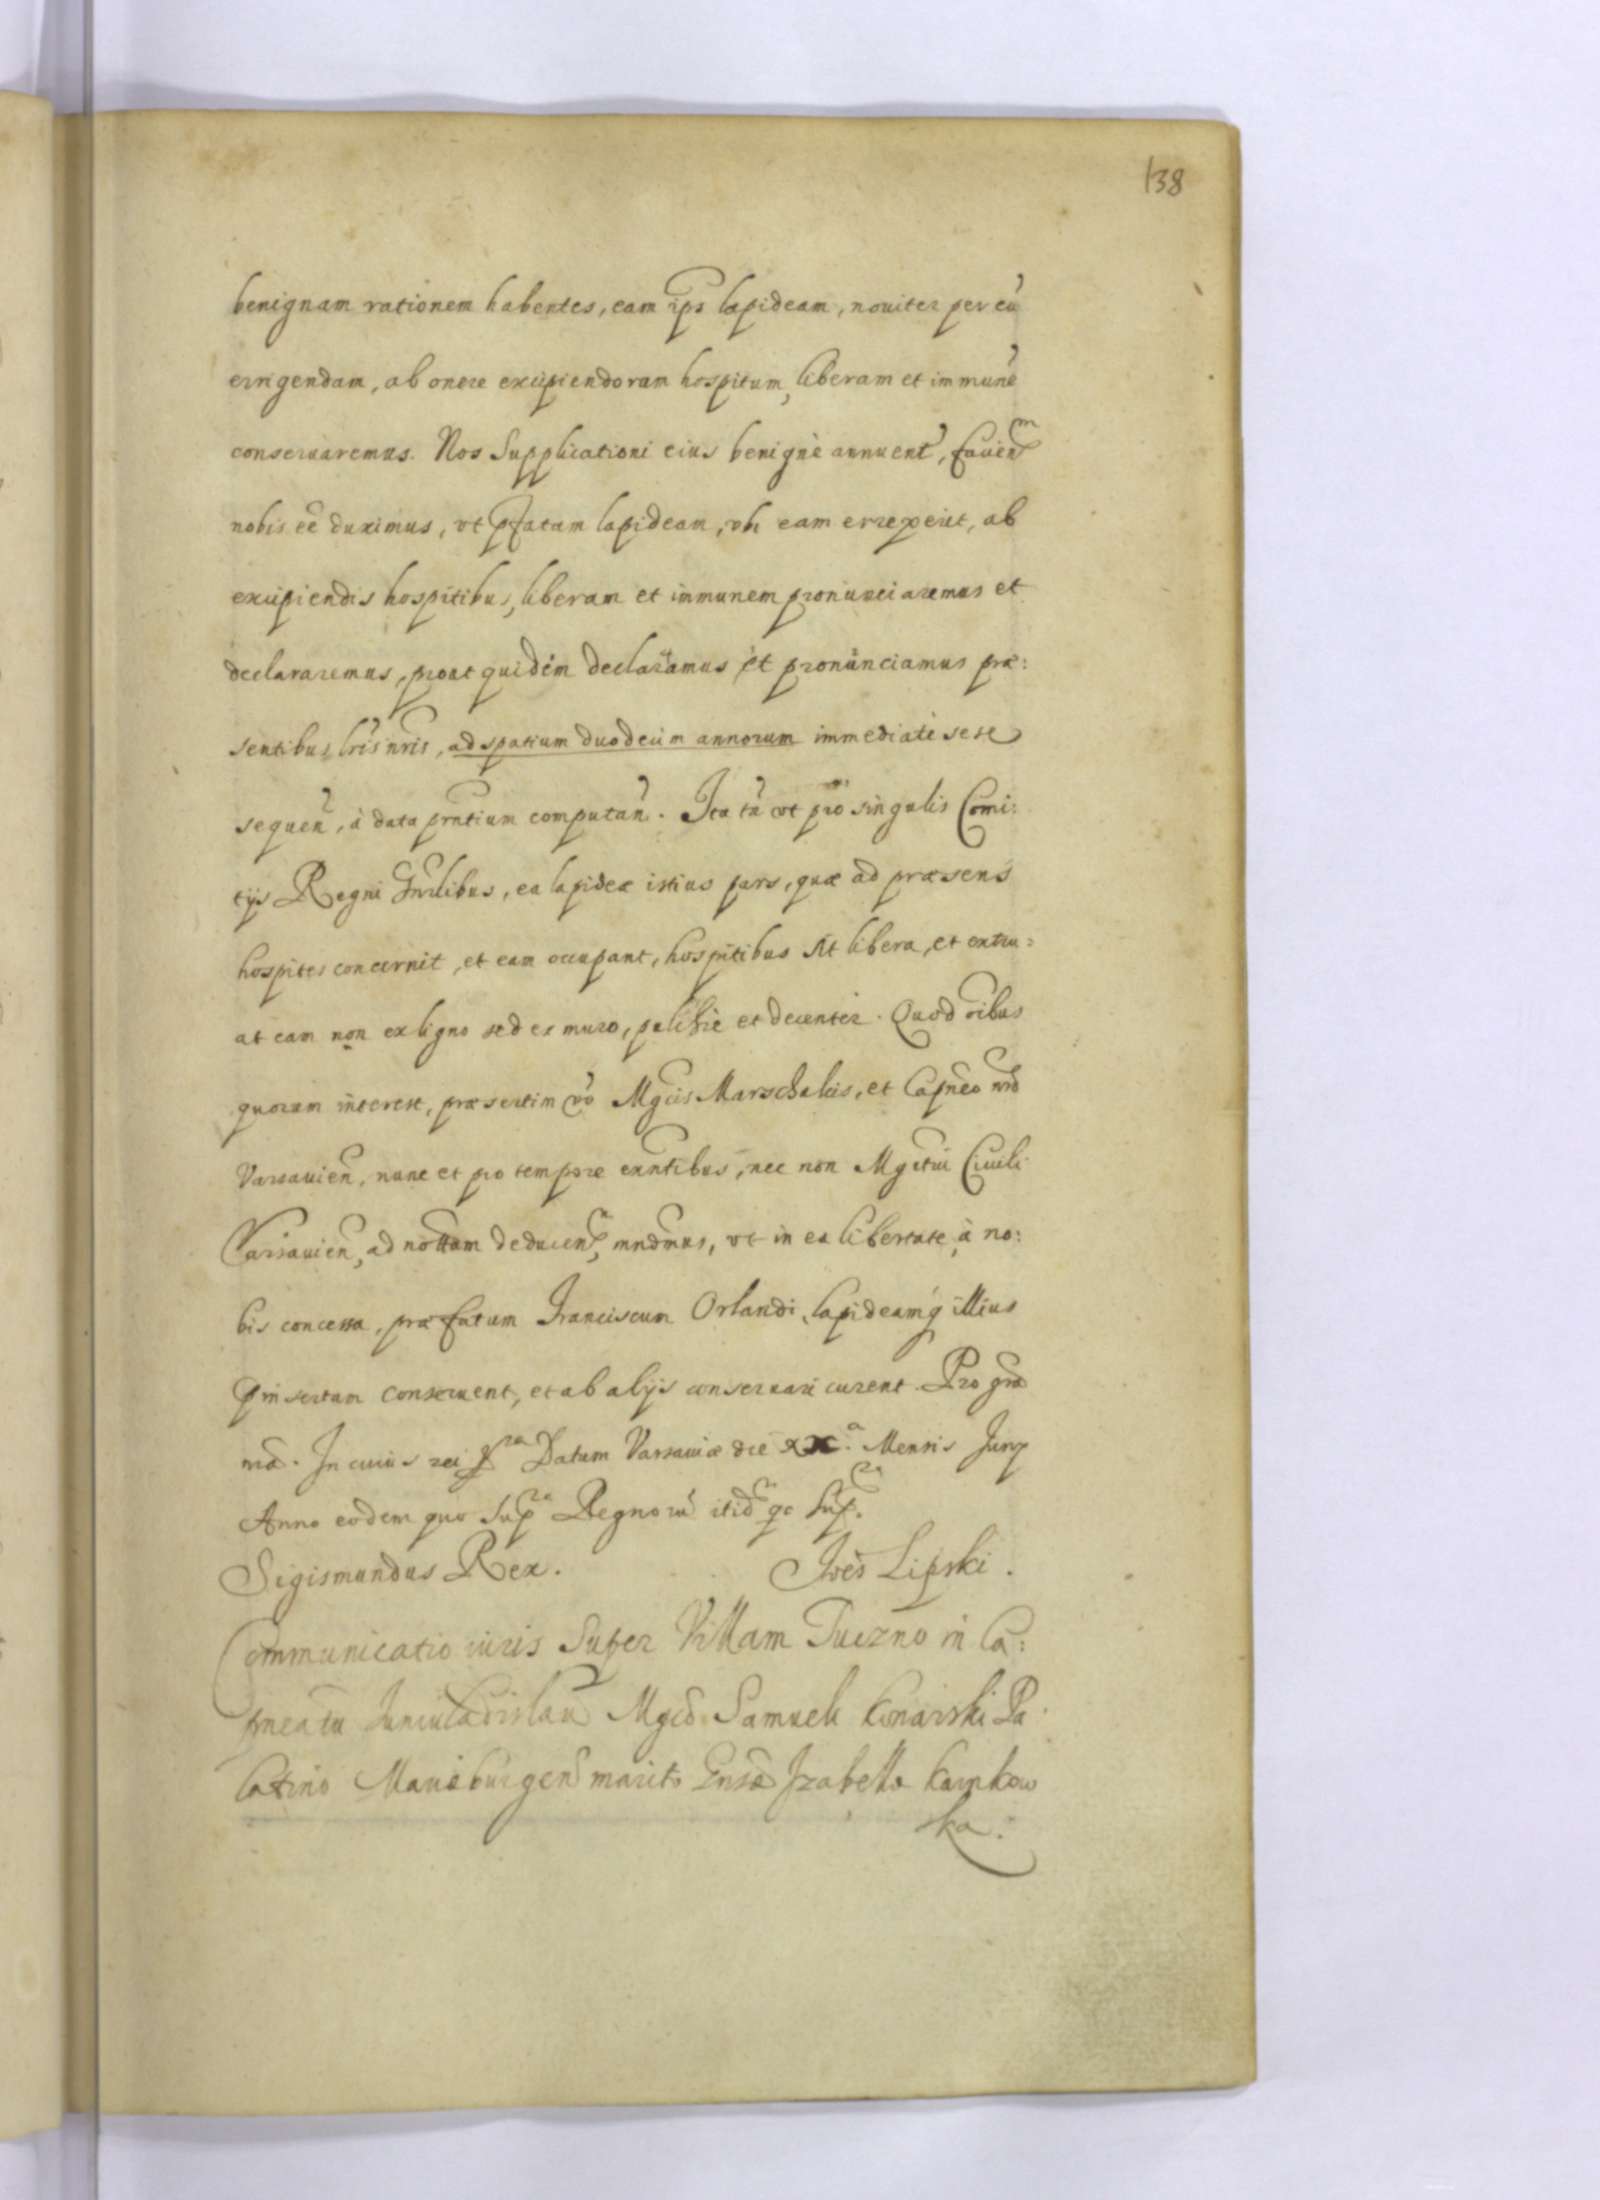 138
benignam rationem habentes, eam ips lapideam, nouiter per eũ
errigendam, ab onere excipiendorum hospitum, liberam et immunẽ
conseruaremus. Nos Supplicationi eius benignè annuent, faciend
nobis eẽ duximus, vt pfatam lapideam, vbi eam errexerit, ab
excipiendis hospitibus, liberam et immunem pronunciaremus et
declararemus, prout quidem declaramus et pronunciamus præ:
sentibus lr̃is nr̃is, ad spatium duodecim annorum immediatè sese
sequeñ, à data pñtium computañ. Ita tñ vt pro singulis Comi:
tijs Regni Gnr̃libus, ea lapideæ istius pars, quæ ad præsens
hospites concernit, et eam occupant, hospitibus sit libera, et extru:
at eam non ex ligno sed ex muro, pulchrè et decenter. Quod oĩbus
quorum interest, præsertim vo Mgcis Marschalcis, et Capneo nro
Varsauieñ, nunc et pro tempore exñtibus, nec non Mgrtui Ciuili
Varsauieñ, ad notitiam deducen, mndmus, vt in ea libertate, à no:
bis concessa, præfatum Franciscum Orlandi, lapideamq illius
pinsertam conseruent, et ab alijs conseruari curent. Pro gra
nra. In cuius rei Datum Varsauiæ die XX.a Mensis Junij
Anno eodem quo Supra Regnorũ itid qe Sup.ra
Sigismundus Rex. Joẽs Lipski.
Communicatio iuris Super Villam Tuczno in Ca:
pneatu Juniuladislau Mgco Samueli Konarski Pa
latino Mariæburgen marito Gnsæ Izabellæ Karnkow
ska.